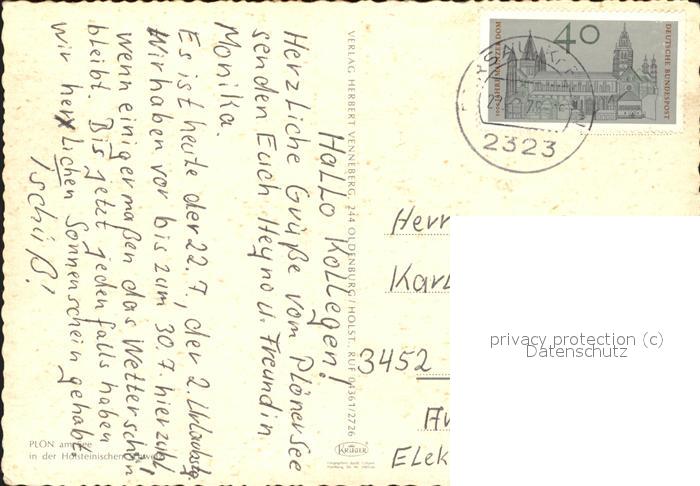 Hallo Kollegen!
Herzliche Grüße vom Plöner See
senden Euch Heyno u. Freundin
Monika.
Es ist heute der 22.7., der 2. Urlaubstg.
Wir haben vor bis zum 30.7. hierzubl.,
wenn einigermaßen das Wetter schön
bleibt. Bis jetzt jedenfalls haben
wir herzlichen Sonnenschein gehabt.
Tschüß!
VERLAG HERBERT VENNEBERG, 244 OLDENBURG/HOLST. RUF 04361/2726
PLÖN am See
in der Holsteinischen
KRÜGER
40
DEUTSCHE BUNDESPOST
2323
Herr
Karl
3452
Elek
privacy protection (c)
Datenschutz